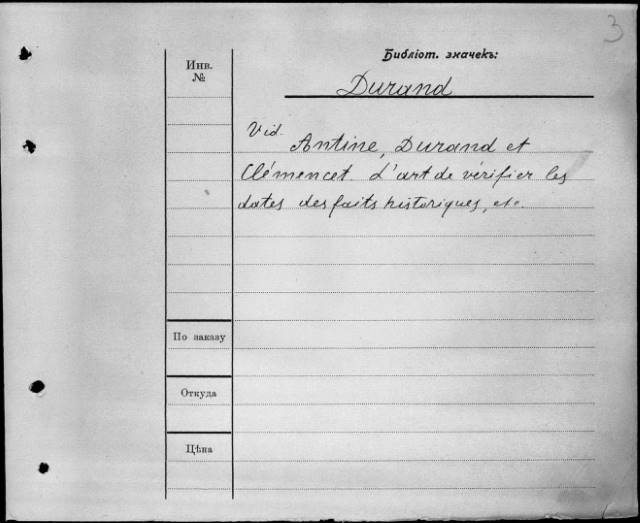 3
Библіот. значекъ:
Инв.
№
Durand
Vid.
Antine, Durand et
Clémencet. L'art de vérifier les
dates des faits historiques, etc.
По заказу
Откуда
Цѣна